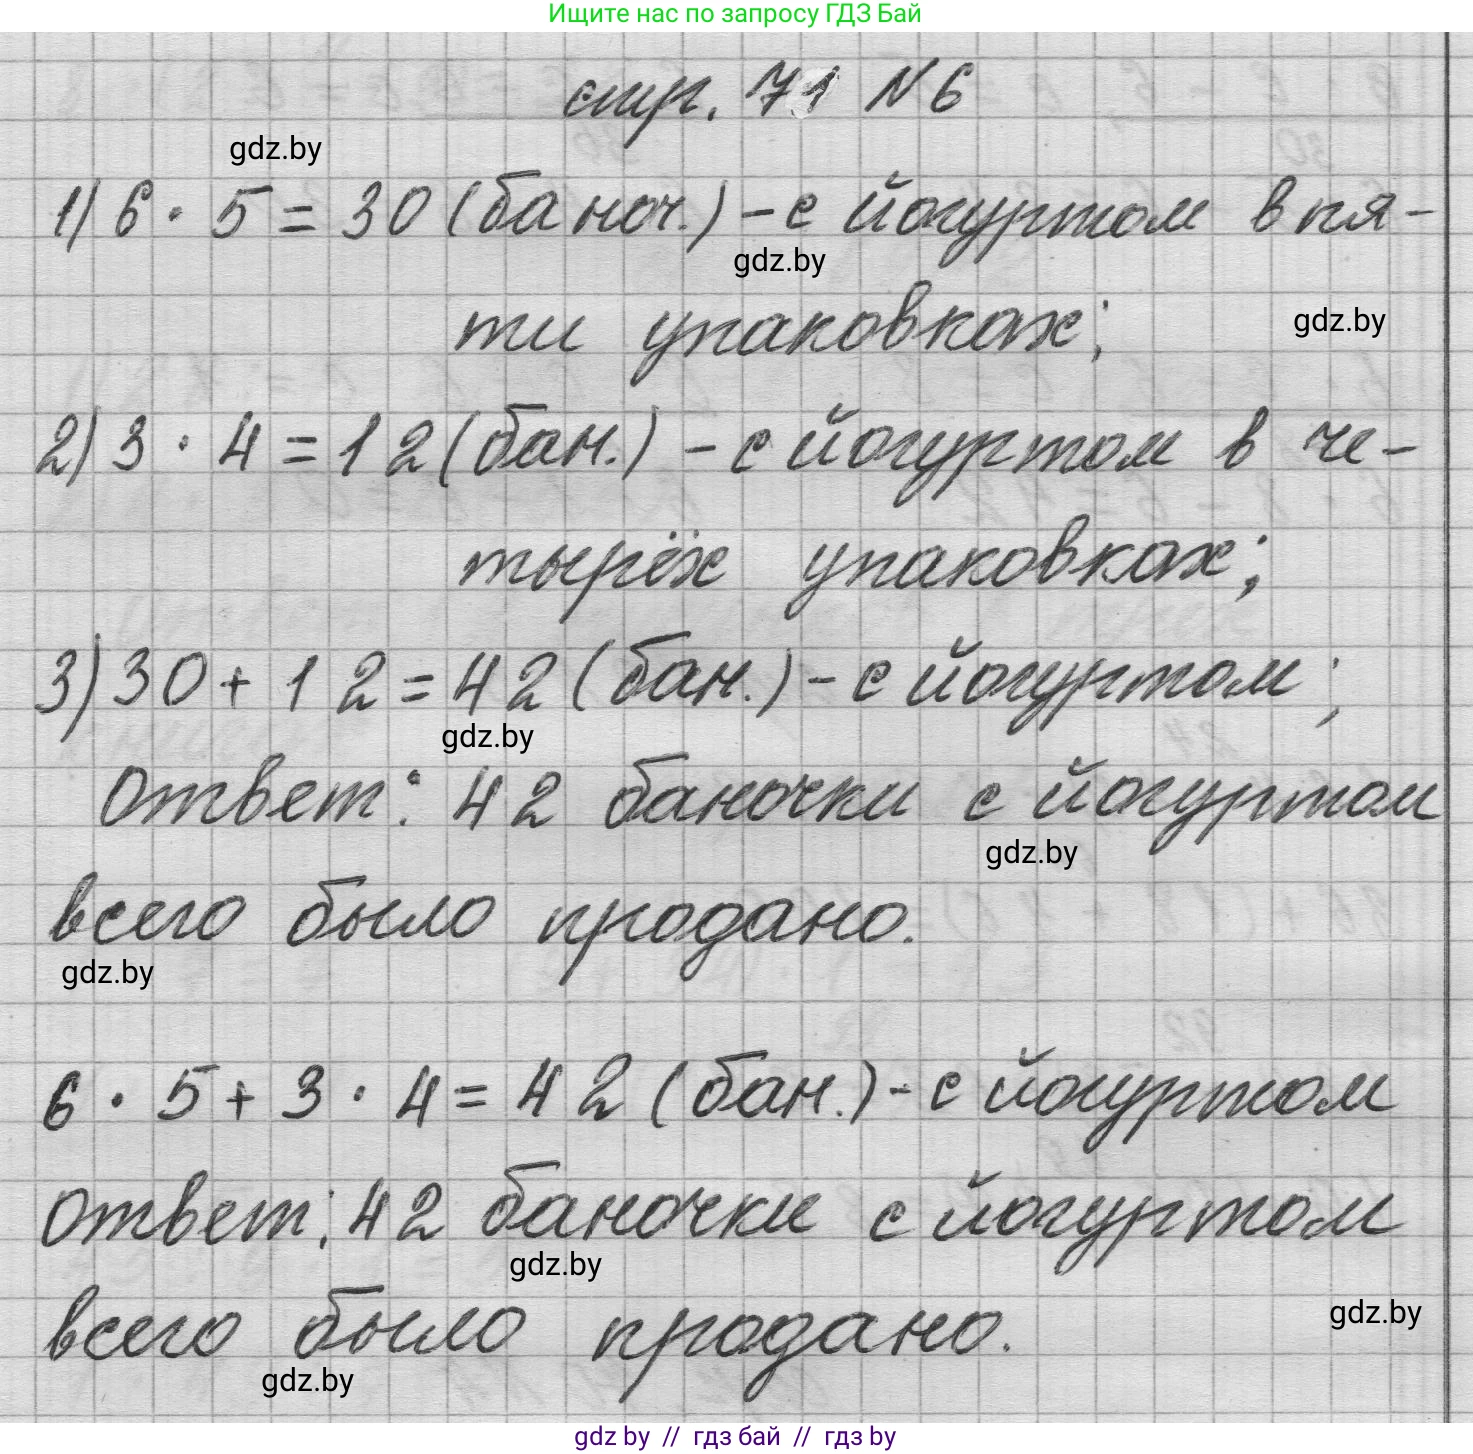 Ищите нас по запросу ГДЗ Бай
стр. 71 № 6
gdz.by
1) 6 · 5 = 30 (баноч.) – с йогуртом в пя-
gdz.by
ти упаковках;
gdz.by
2) 3 · 4 = 12 (бан.) – с йогуртом в че-
тырёх упаковках;
3) 30 + 12 = 42 (бан.) – с йогуртом;
gdz.by
Ответ: 42 баночки с йогуртом
gdz.by
всего было продано.
gdz.by
6 · 5 + 3 · 4 = 42 (бан.) – с йогуртом
Ответ: 42 баночки с йогуртом
gdz.by
всего было продано.
gdz.by
gdz.by
gdz by // гдз бай // гдз by